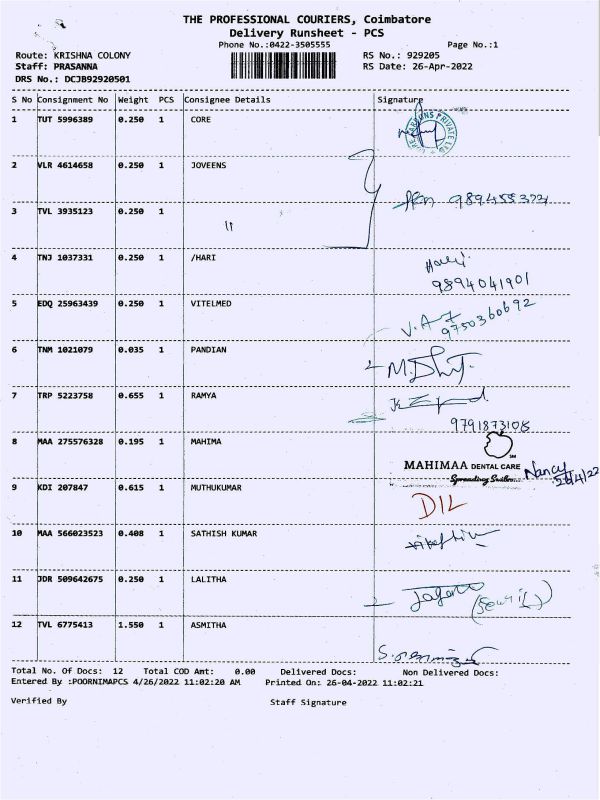 THE PROFESSIONAL COURIERS, Coimbatore
Delivery Runsheet - PCS
Phone No.:0422-3505555 Page No.:1
Route: KRISHNA COLONY RS No.: 929205
Staff: PRASANNA RS Date: 26-Apr-2022
DRS No.: DCJB92920501
S No Consignment No Weight PCS Consignee Details Signature
1 TUT 5996389 0.250 1 CORE
2 VLR 4614658 0.250 1 JOVEENS
9894553731
3 TVL 3935123 0.250 1 11
4 TNJ 1037331 0.250 1 /HARI Hari
9894041901
5 EDQ 25963439 0.250 1 VITELMED V.A.
9750360692
6 TNM 1021079 0.035 1 PANDIAN
7 TRP 5223758 0.655 1 RAMYA
9791873108
8 MAA 275576328 0.195 1 MAHIMA
MAHIMAA DENTAL CARE Nancy
Spreading Smiles 26/4/22
9 KDI 207847 0.615 1 MUTHUKUMAR DIL
10 MAA 566023523 0.408 1 SATHISH KUMAR
11 JDR 509642675 0.250 1 LALITHA
12 TVL 6775413 1.550 1 ASMITHA
Total No. Of Docs: 12 Total COD Amt: 0.00 Delivered Docs: Non Delivered Docs:
Entered By :POORNIMAPCS 4/26/2022 11:02:20 AM Printed On: 26-04-2022 11:02:21
Verified By Staff Signature